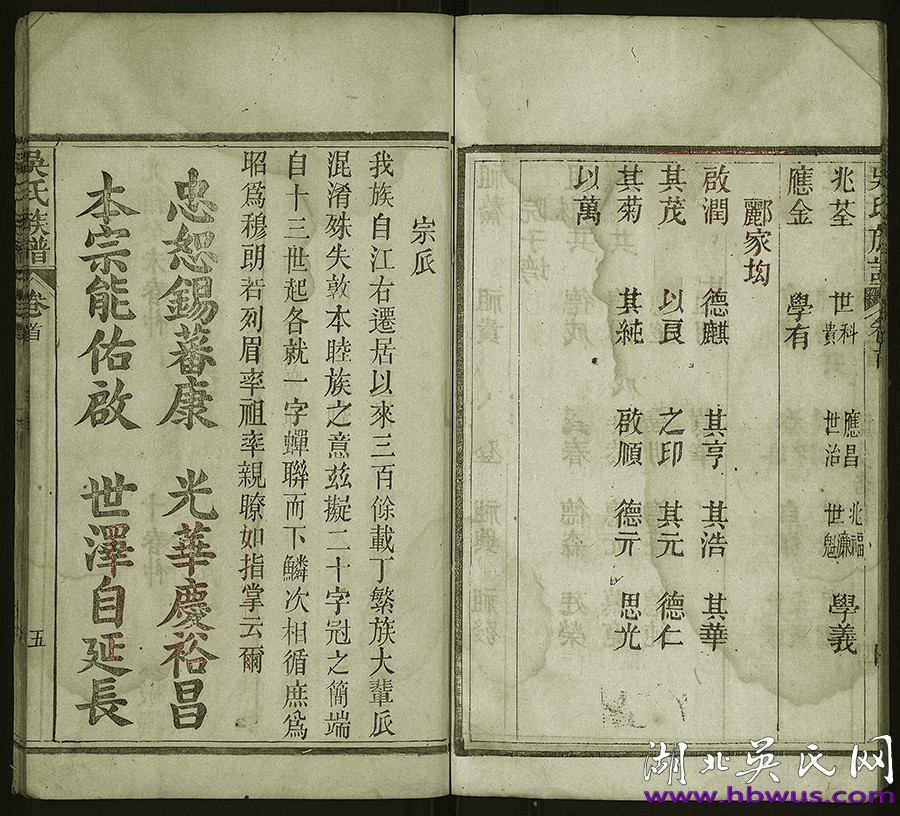 兆荃 世科貴 應昌世治 兆福世廉世魁 學義
應金 學有
酈家坳
啟潤 德麒 其亨 其浩 其華
其茂 以良 之印 其元 德仁
其菊 其純 啟順 德亓 思光
以萬
宗派
我族自江右遷居以來三百餘載丁繁族大輩派
混淆殊失敦本睦族之意茲擬二十字冠之簡端
自十三世起各就一字蟬聯而下鱗次相循庶為
昭為穆朗若列眉率祖率親瞭如指掌云爾
忠恕錫蕃康 光華慶裕昌
本宗能佑啟 世澤自延長
吳氏族譜 卷首 五
湖北吳氏网
www.hbwus.com